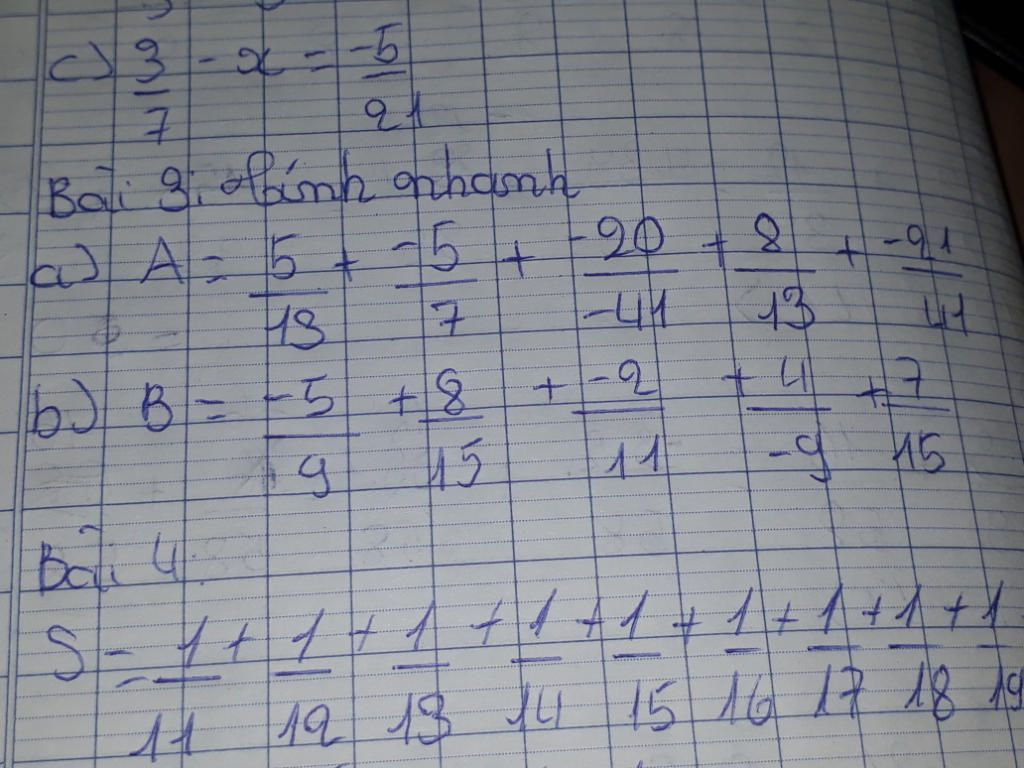 c) 3/7 - x = -5/21
Bài 3: Tính nhanh
a) A = 5/13 + -5/7 + -20/-41 + 8/13 + -21/41
b) B = -5/9 + 8/15 + -2/11 + 4/-9 + 7/15
Bài 4:
S = 1/11 + 1/12 + 1/13 + 1/14 + 1/15 + 1/16 + 1/17 + 1/18 + 1/19